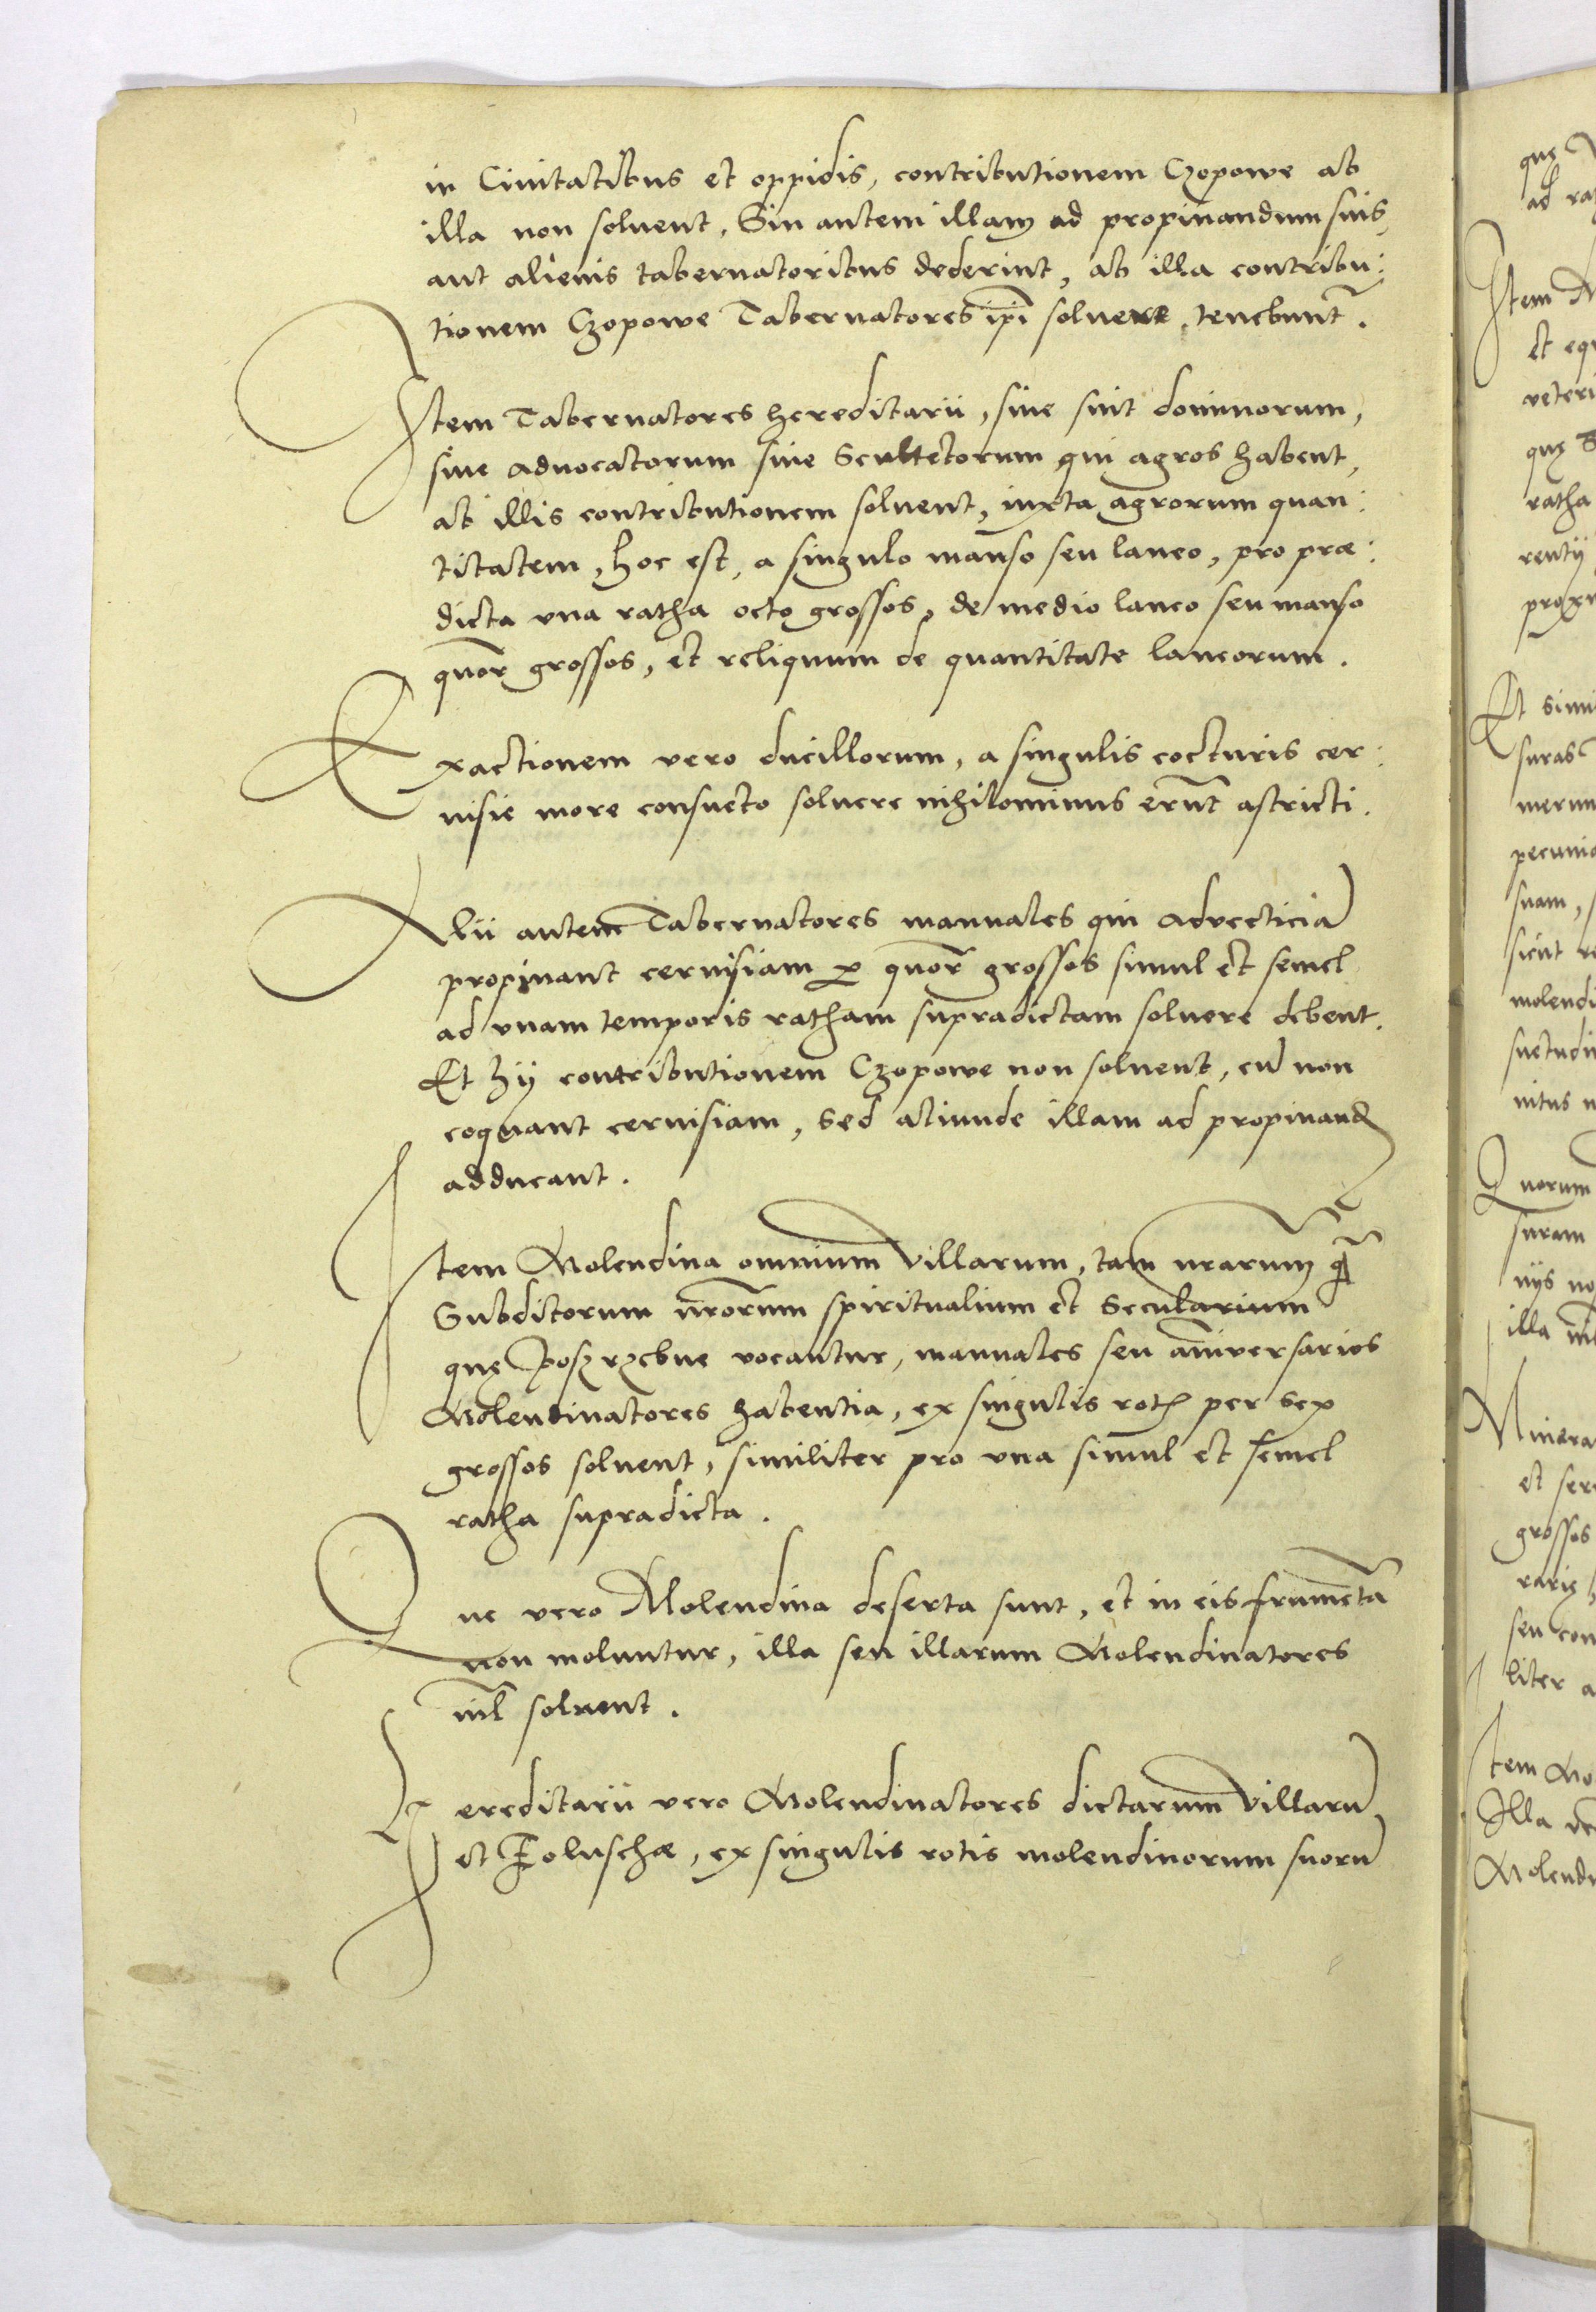 in Ciuitatibus et oppidis, contributionem Czopowe ab
illa non soluent, Sin autem illam ad propinandum suis,
aut alienis tabernatoribus dederint, ab illa contribu:
tionem Czopowe Tabernatores ip̅i soluere, tenebunt̅.
Item Tabernatores hereditarii, siue sint dominorum,
siue aduocatorum siue Scultetorum qui agros habent,
ab illis contributionem soluent, iuxta agrorum quan:
titatem, hoc est, a singulo manso seu laneo, pro præ:
dicta vna ratha octo grossos, de medio laneo seu manso
quor̅ grossos, et reliquum de quantitate laneorum.
Exactionem vero ducillorum, a singulis cocturis cer:
uisie more consueto soluere nihilominus erūt astricti.
Alii autem Tabernatores manuales qui aduecticiā
propinant ceruisiam ꝑ quor̅ grossos simul et semel
ad vnam temporis ratham supradictam soluere debent.
Et hÿ contributionem Czopowe non soluent, cū non
coquant ceruisiam, sed aliunde illam ad propinand
adducant.
Item Molendina omnium villarum, tam nrarum q̅
Subditorum nr̅orum spiritualium et Secularium
quę Poszrzebne vocantur, manuales seu an̅iuersarios
Molendinatores habentia, ex singulis rotꝭ per sex
grossos soluent, similiter pro vna simul et semel
ratha supradicta.
Que vero Molendina deserta sunt, et in eis frumēta
non moluntur, illa seu illarum Molendinatores
nil̅ soluent.
Hereditarii vero Molendinatores dictarum villarū
et Foluschæ, ex singulis rotis molendinorum suorū
quę
ad
Item
et
quę
ratha
Et
suras
pecunia
suam,
sicut
nitus
Quorum
suram
illa
et
grossos
seu
liter
Item
Illa